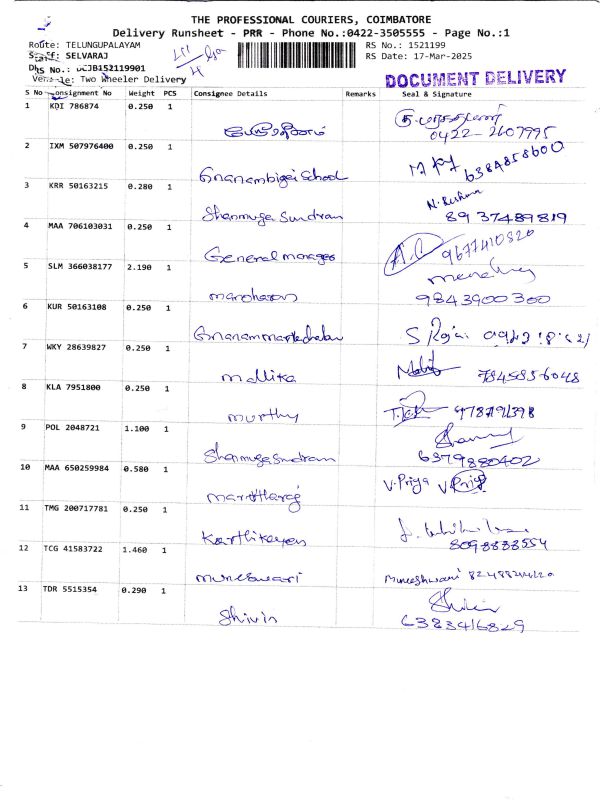 THE PROFESSIONAL COURIERS, COIMBATORE
Delivery Runsheet - PRR - Phone No.:0422-3505555 - Page No.:1
Route: TELUNGUPALAYAM RS No.: 1521199
Staff: SELVARAJ RS Date: 17-Mar-2025
DRS No.: JB152119901
Vehicle: Two Wheeler Delivery DOCUMENT DELIVERY
S No Consignment No Weight PCS Consignee Details Remarks Seal & Signature
1 KDI 786874 0.250 1
0422-2607995
2 IXM 507976400 0.250 1
Gnanambigai School 6384858600
3 KRR 50163215 0.280 1
Shanmuga Sundram 8937489819
4 MAA 706103031 0.250 1
General manager 9677410820
5 SLM 366038177 2.190 1
manoharan 9843900300
6 KUR 50163108 0.250 1
S Raja
7 WKY 28639827 0.250 1
mallika 7845856048
8 KLA 7951800 0.250 1
murthy
9 POL 2048721 1.100 1
Shanmuga Sundram 6379880402
10 MAA 650259984 0.580 1
V. Priya
11 TMG 200717781 0.250 1
Karthikeyan 8098888554
12 TCG 41583722 1.460 1
muneswari Muneeshwari
13 TDR 5515354 0.290 1
Shivin 6383416829